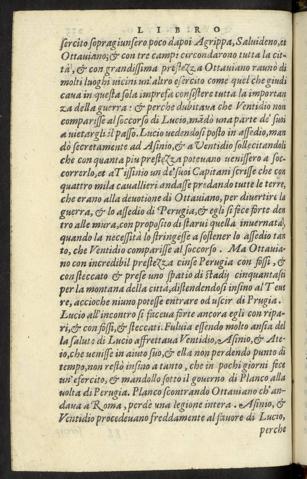 LIBRO
sercito sopragiunsero poco dapoi Agrippa, Saluideno, et
Ottauiano; & con tre campi circondarono tutta la cit-
tà, & con grandissima prestezza Ottauiano raunò di
molti luoghi uicini un'altro esercito come quel che giudi
caua in questa sola impresa consistere tutta la importan
za della guerra: & perche dubitaua che Ventidio non
comparisse al soccorso di Lucio, mādò una parte de' suoi
a uietargli il passo. Lucio uedendosi posto in assedio, man
dò secretamente ad Asinio, & a Ventidio sollecitandoli
che con quanta piu prestezza poteuano uenissero a soc-
correrlo, et a Tissinio un de' suoi Capitani scrisse che con
quattro mila cauallieri andasse predando tutte le terre,
che erano alla deuotione di Ottauiano, per diuertire la
guerra, & lo assedio di Perugia, & egli si fece forte den
tro alle mura, con proposito di starui quella inuernata,
quando la necessità lo stringesse a sostener lo assedio tan
to, che Ventidio comparisse al soccorso. Ma Ottauia-
no con incredibil prestezza cinse Perugia con fossi, &
con steccato & prese uno spatio di stadij cinquantasei
per la montana della città, distendendosi insino al Teue
re, accioche niuno potesse entrare od uscir di Prugia.
Lucio all'incontro si faceua forte ancora egli con ripa-
ri, & con fossi, & steccati. Fuluia essendo molto ansia del
la salute di Lucio affrettaua Ventidio, Asinio, & Ate-
io, che uenisse in aiuto suo, & ella non perdendo punto di
tempo, non restò insino a tanto, che in pochi giorni fece
un'esercito, & mandollo sotto il gouerno di Planco alla
uolta di Perugia. Planco scontrando Ottauiano ch'an-
daua a Roma, perdè una legione intera. Asinio, &
Ventidio procedeuano freddamente al fauore di Lucio,
perche